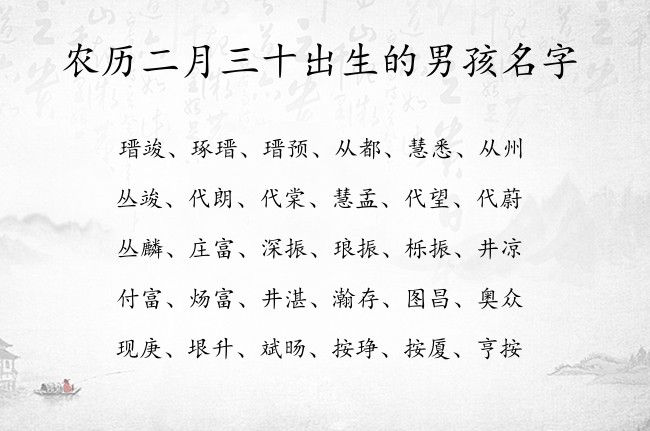 农历二月三十出生的男孩名字
瑨竣、琢瑨、瑨预、从都、慧悉、从州
丛竣、代朗、代棠、慧孟、代望、代蔚
丛麟、庄富、深振、琅振、栎振、井凉
付富、炀富、井湛、瀚存、图昌、奥众
现庚、垠升、斌旸、按琤、按厦、亨按